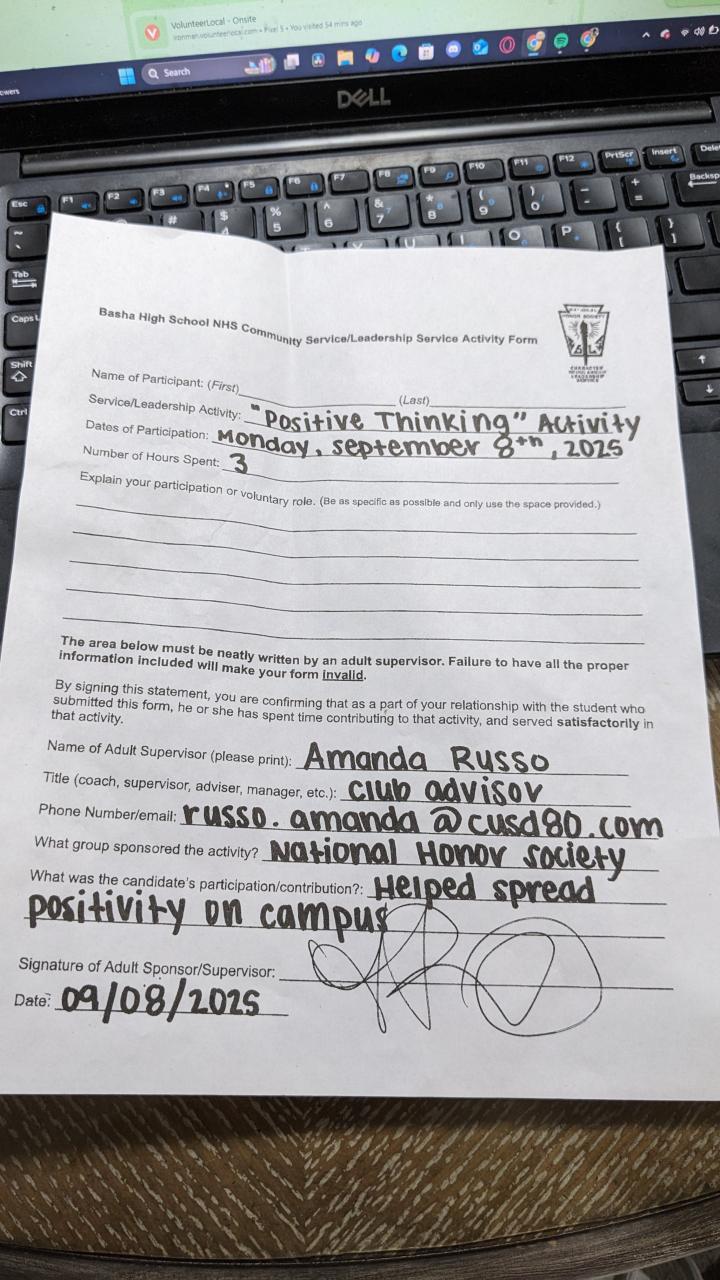 VolunteerLocal - Onsite
ironman.volunteerlocal.com • Pixel 5 • You visited 54 mins ago
Search
DELL
Esc F1 F2 F3 F4 F5 F6 F7 F8 F9 F10 F11 F12 PrtScr Insert Dele
~ # $ % ^ & * ( ) - + Backsp
` 4 5 6 7 8 9 0 =
Tab U I O P { [ } ]
Caps L
Shift
Ctrl
Basha High School NHS Community Service/Leadership Service Activity Form
NATIONAL HONOR SOCIETY
CHARACTER
SCHOLARSHIP
LEADERSHIP
SERVICE
Name of Participant: (First) (Last)
Service/Leadership Activity: "Positive Thinking" Activity
Dates of Participation: Monday, september 8th, 2025
Number of Hours Spent: 3
Explain your participation or voluntary role. (Be as specific as possible and only use the space provided.)
The area below must be neatly written by an adult supervisor. Failure to have all the proper
information included will make your form invalid.
By signing this statement, you are confirming that as a part of your relationship with the student who
submitted this form, he or she has spent time contributing to that activity, and served satisfactorily in
that activity.
Name of Adult Supervisor (please print): Amanda Russo
Title (coach, supervisor, adviser, manager, etc.): club advisor
Phone Number/email: russo.amanda@cusd80.com
What group sponsored the activity? National Honor Society
What was the candidate's participation/contribution?: Helped spread
positivity on campus
Signature of Adult Sponsor/Supervisor:
Date: 09/08/2025